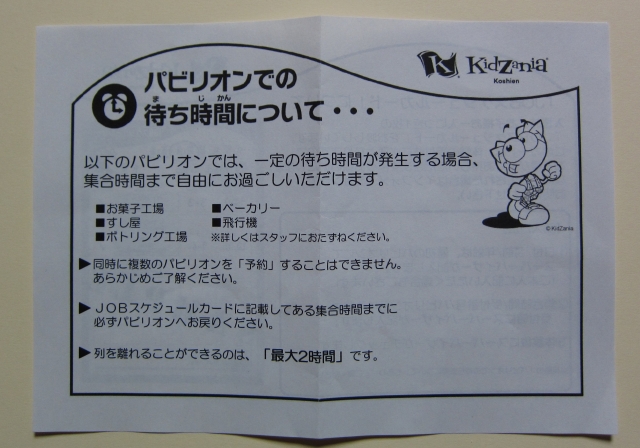 KidZania
Koshien
パビリオンでの
待ち時間について・・・
ま じ かん
以下のパビリオンでは、一定の待ち時間が発生する場合、
集合時間まで自由にお過ごしいただけます。
■お菓子工場 ■ベーカリー
■すし屋 ■飛行機
■ボトリング工場 ※詳しくはスタッフにおたずねください。
© KidZania
▶同時に複数のパビリオンを「予約」することはできません。
あらかじめご了解ください。
▶JOBスケジュールカードに記載してある集合時間までに
必ずパビリオンへお戻りください。
▶列を離れることができるのは、「最大2時間」です。